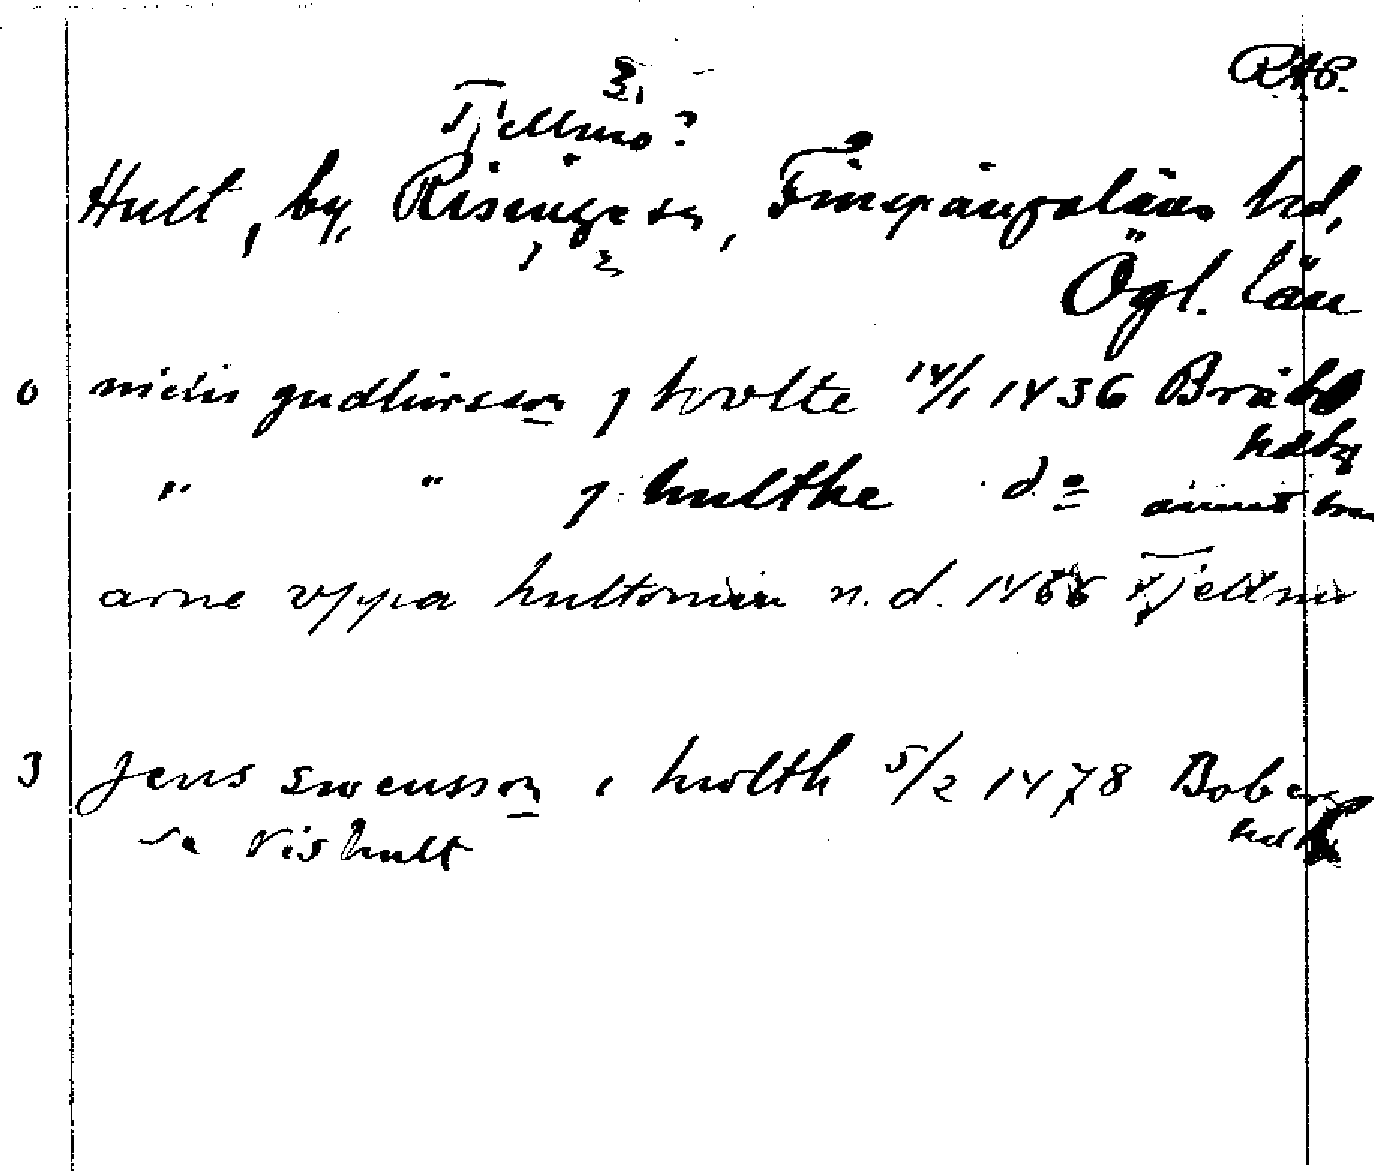 RAP.
Tjellmo?
Hult, by, Risinge sn, Finspångaläns hd,
Ögl. län
0 niclis gudhirsson j hwlte 14/1 1436 Bråbo
hdbg
" " j hulthe do
arne vppa hultomen n.d. 1466 Tjellmo
3 Jens swensson i hwlth 5/2 1478 Boberg
hd
se Vishult